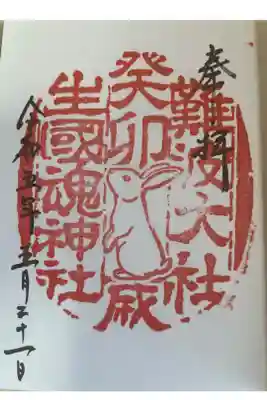 奉拝
難波大社
癸卯歳
生國魂神社
令和五年三月二十一日